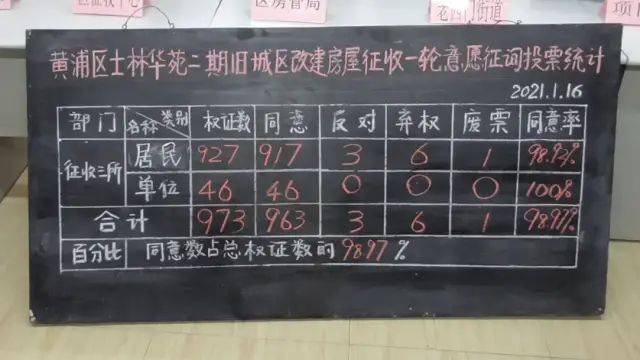 区房管局
老西门街道
黄浦区士林华苑二期旧城区改建房屋征收一轮意愿征询投票统计
2021.1.16
部门 名称 类别 权证数 同意 反对 弃权 废票 同意率
征收三所 居民 927 917 3 6 1 98.92%
单位 46 46 0 0 0 100%
合计 973 963 3 6 1 98.97%
百分比 同意数占总权证数的 98.97%